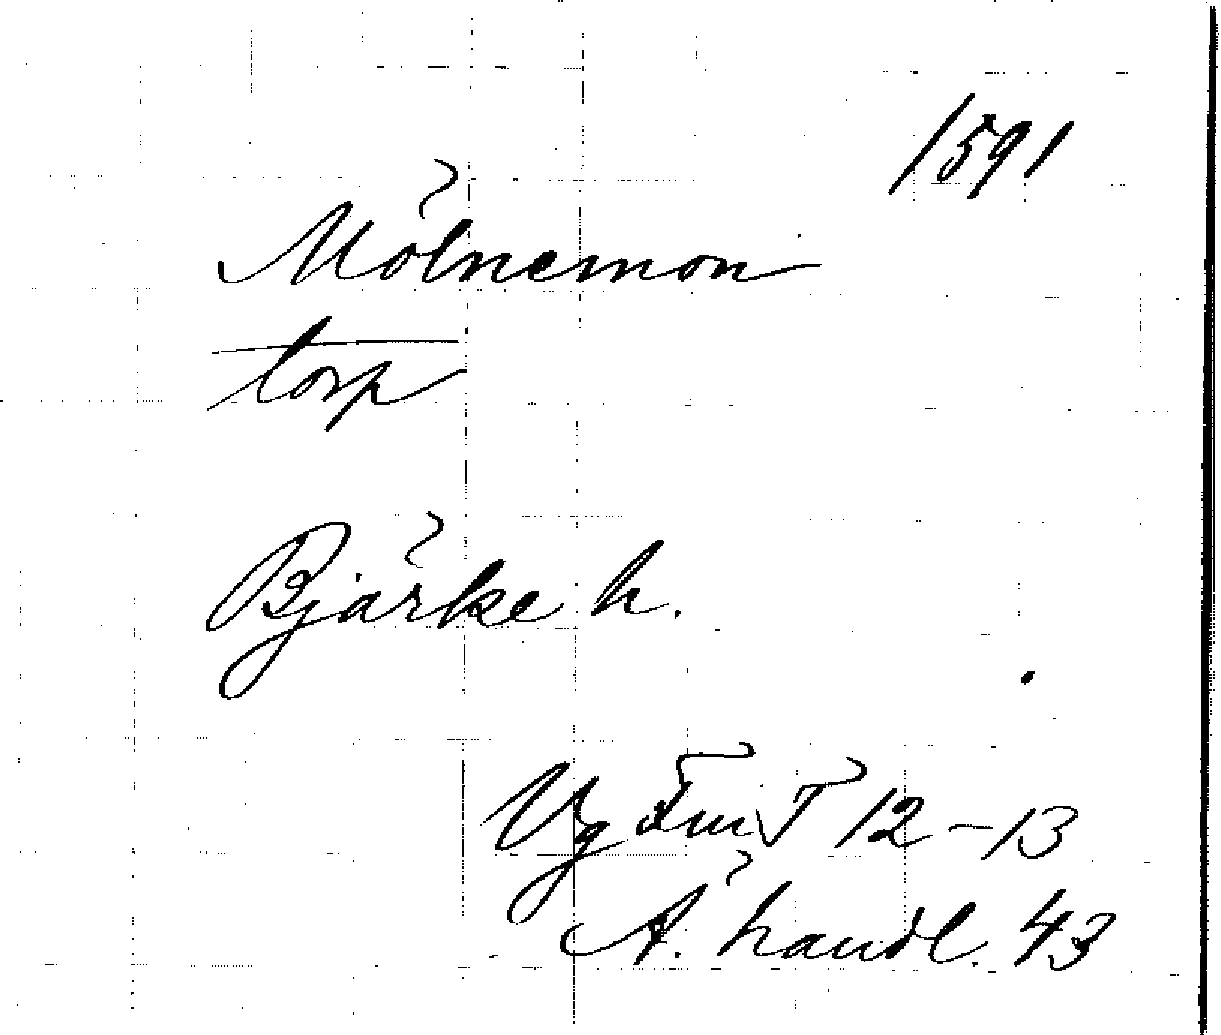 1591
Mölnemon
torp
Bjärke h.
Vg 12-13
Ä. handl. 43